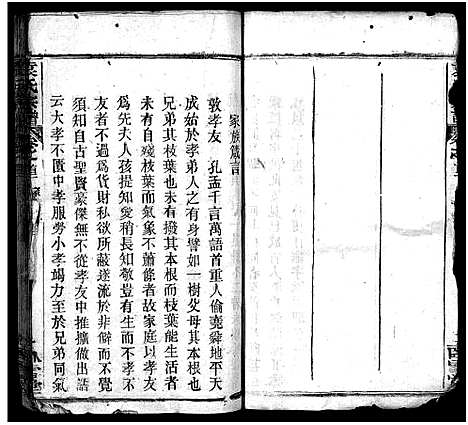 家族箴言
敦孝友 孔孟千言萬語首重人倫堯舜地平天
成始於孝弟人之有身譬如一樹父母其本根也
兄弟其枝葉也未有撥其本根而枝葉能生活者
未有自殘枝葉而氣象不蕭條者故家庭以孝友
為先夫人孩提知愛稍長知敬豈有生而不孝不
友者不過為貨財私欲所蔽遂流於悖逆而不覺
須知自古聖賢豪傑無不從孝友中推擴做出語
云大孝不匱中孝服勞小孝竭力至於兄弟同氣